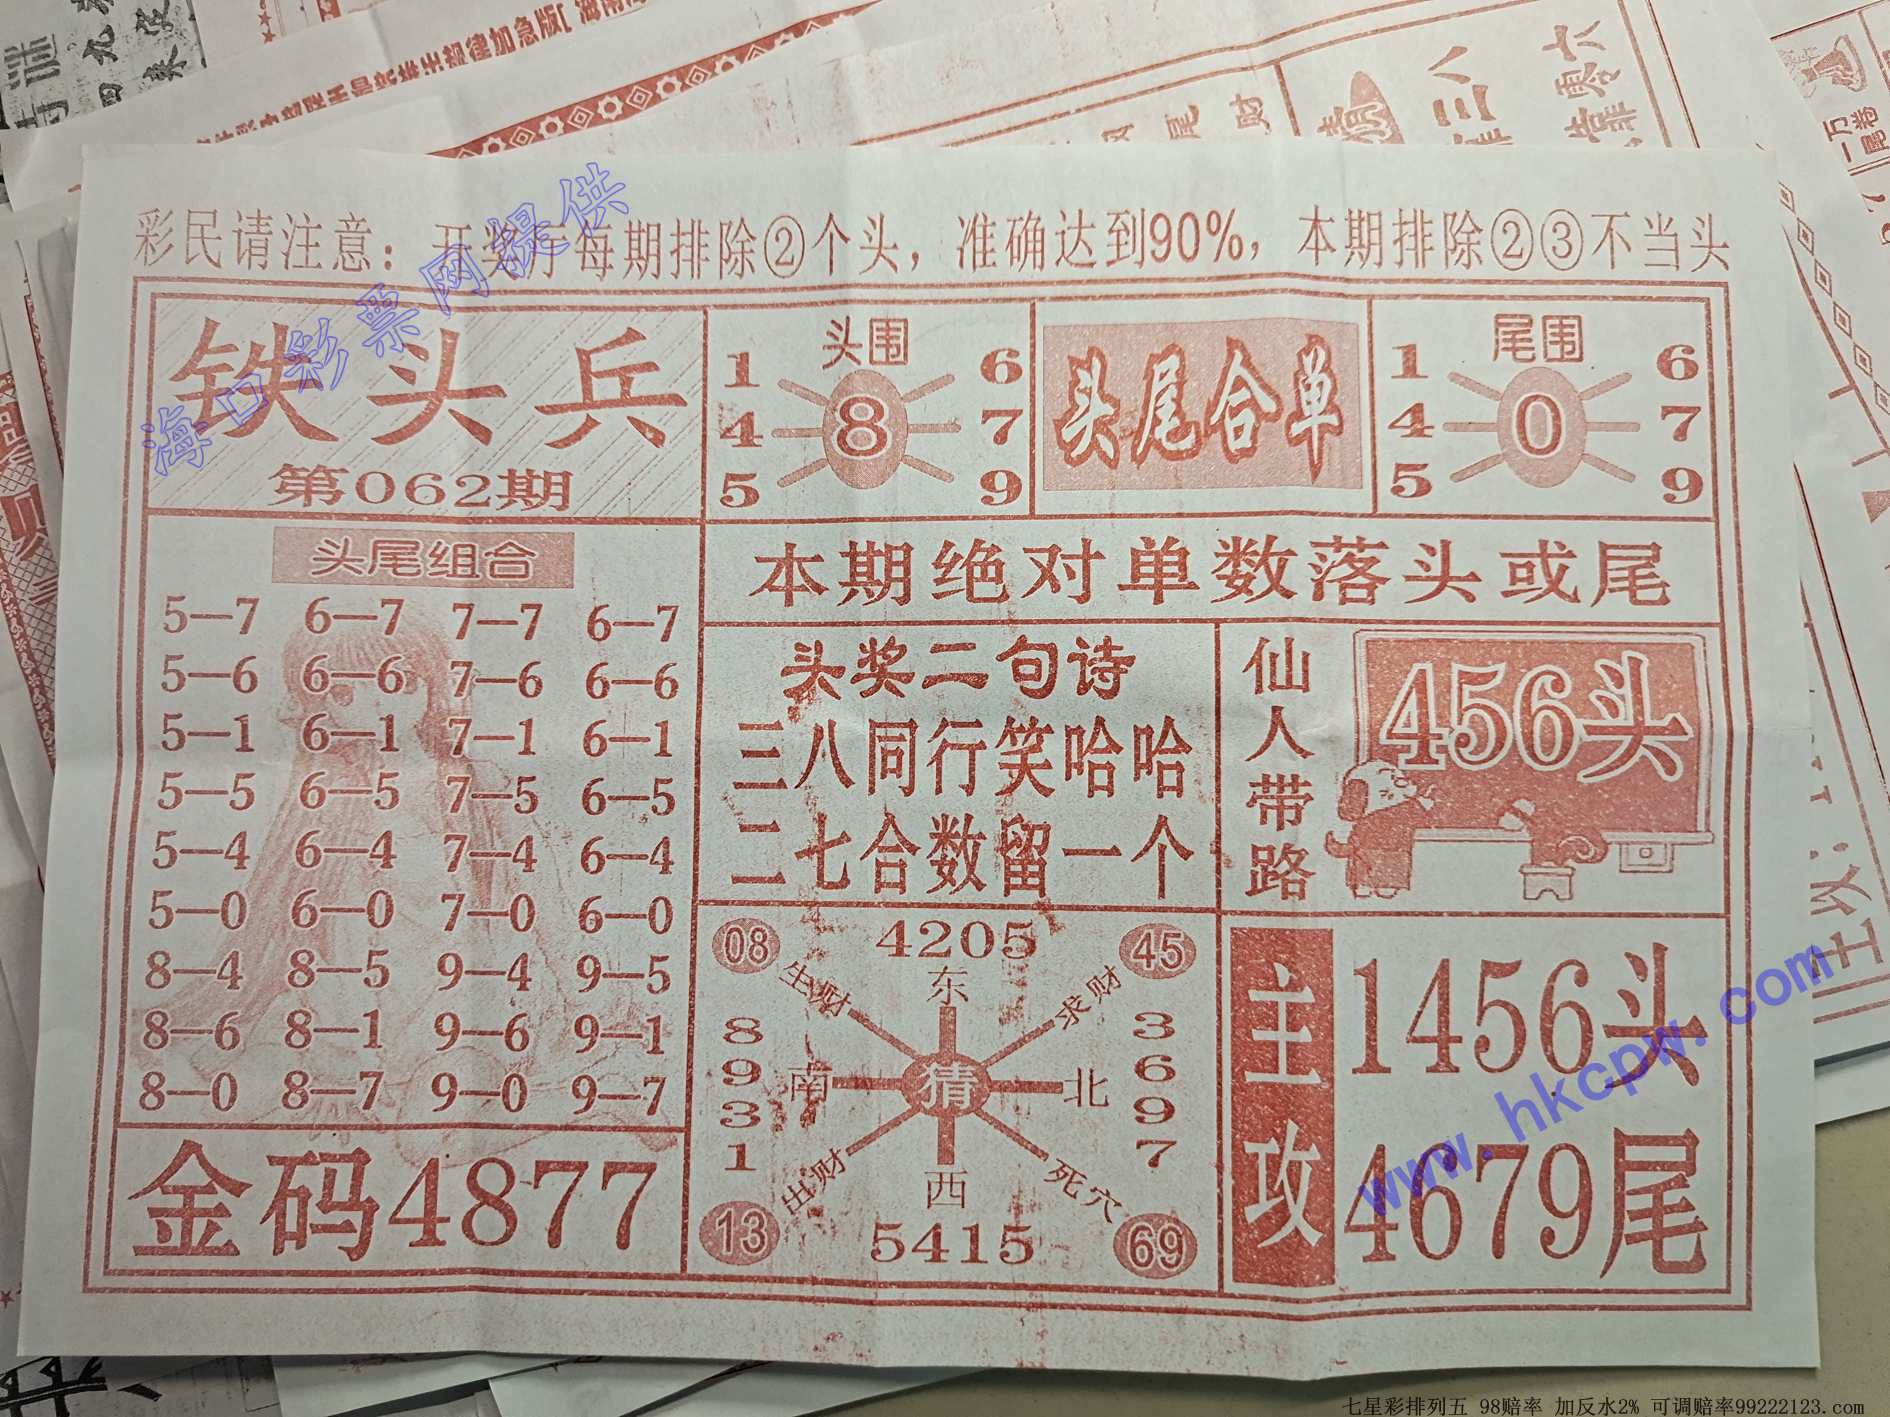 彩民请注意：开奖厅每期排除②个头，准确达到90%，本期排除②③不当头
海口彩票网提供
铁头兵
第062期
头围
8
1 6
4 7
5 9
头尾合单
尾围
0
1 6
4 7
5 9
头尾组合
5—7 6—7 7—7 6—7
5—6 6—6 7—6 6—6
5—1 6—1 7—1 6—1
5—5 6—5 7—5 6—5
5—4 6—4 7—4 6—4
5—0 6—0 7—0 6—0
8—4 8—5 9—4 9—5
8—6 8—1 9—6 9—1
8—0 8—7 9—0 9—7
金码4877
本期绝对单数落头或尾
头奖二句诗
三八同行笑哈哈
二七合数留一个
仙人带路
456头
08 4205 45
生财 东 求财
8931 南 猜 北 3697
出财 西 死穴
13 5415 69
主攻
1456头
4679尾
www.hkcpw.com
七星彩排列五 98赔率 加反水2% 可调赔率99222123.com